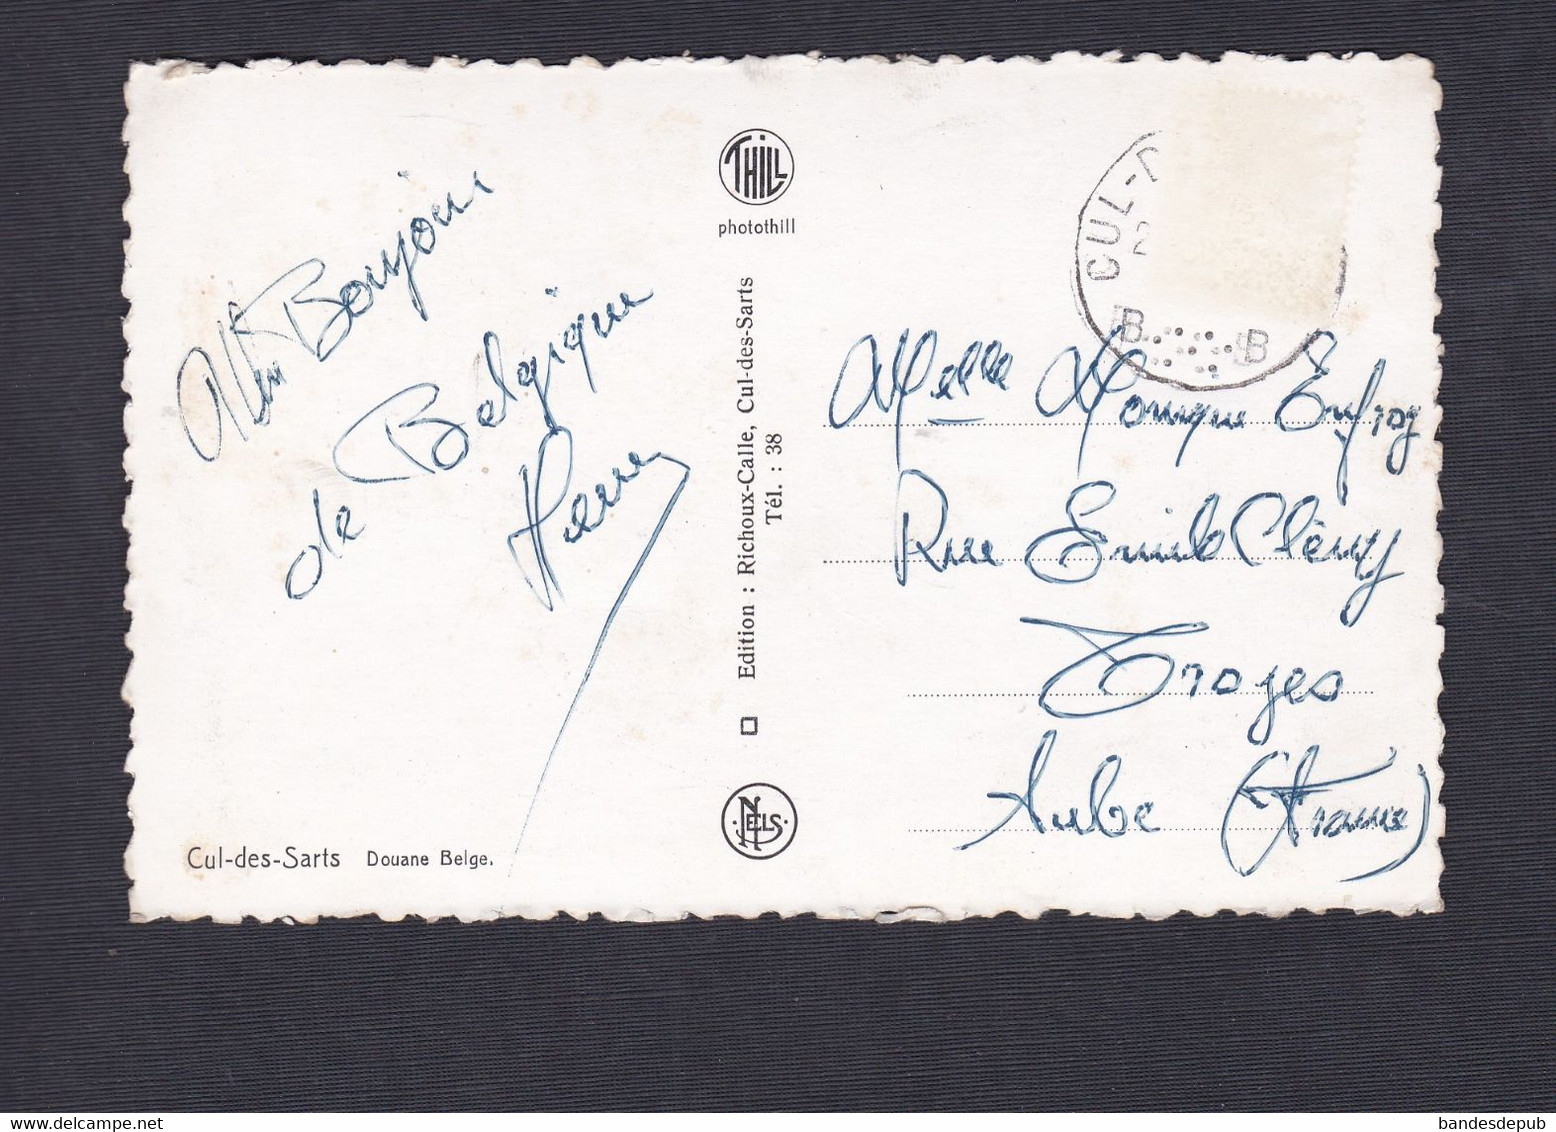 Un Bonjour
de Belgique
THILL
photothill
Edition : Richoux-Calle, Cul-des-Sarts
Tél. : 38
NELS
Cul-des-Sarts Douane Belge.
CUL-D
2
B B
Melle Monique Enfroy
Rue Emile Clémy
Troyes
Aube (France)
bandesdepub